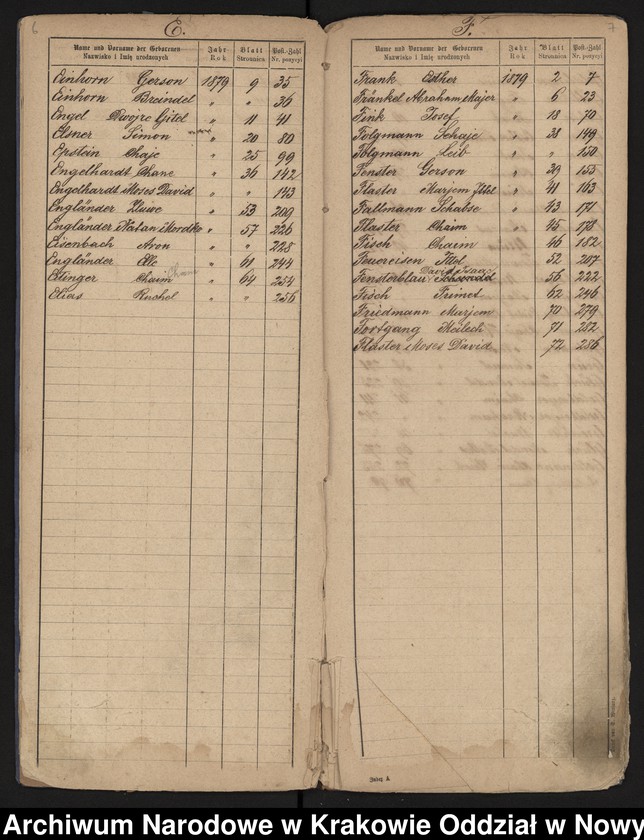 6
E.
Name und Vorname der Geborenen Jahr Blatt Post.-Zahl
Nazwisko i Imię urodzonych Rok Stronnica Nr. pozycyi
Einhorn Gerson 1879 9 35
Einhorn Breindel " " 36
Engel Dwojre Gitel " 11 41
Elsner Simon " 20 80
Epstein Chaje " 25 99
Engelhardt Chane " 36 142
Engelhardt Moses David " " 143
Engländer " 53 209
Engländer Natan Mordko " 57 226
Eisenbach Aron " " 228
Engländer Elle " 61 244
Ettinger Chaim " 64 254
Elias Ruchel " " 256
7
F.
Name und Vorname der Geborenen Jahr Blatt Post.-Zahl
Nazwisko i Imię urodzonych Rok Stronnica Nr. pozycyi
Frank Esther 1879 2 7
Fränkel Abraham Majer " 6 23
Fink Josef " 18 70
Folgmann Schaje " 38 149
Folgmann Leib " " 150
Fenster Gerson " 39 155
Flaster Marjem Ittel " 41 163
Faltmann Schabse " 43 171
Flaster Chaim " 45 178
Fisch Chaim " 46 182
Feuereisen Ittel " 52 207
Fensterblau David Isaac " 56 222
Fisch Frimet " 62 246
Friedmann Marjem " 70 279
Fortgang Meilech " 71 282
Flaster Moses David " 72 286
Index A.
Archiwum Narodowe w Krakowie Oddział w Nowy